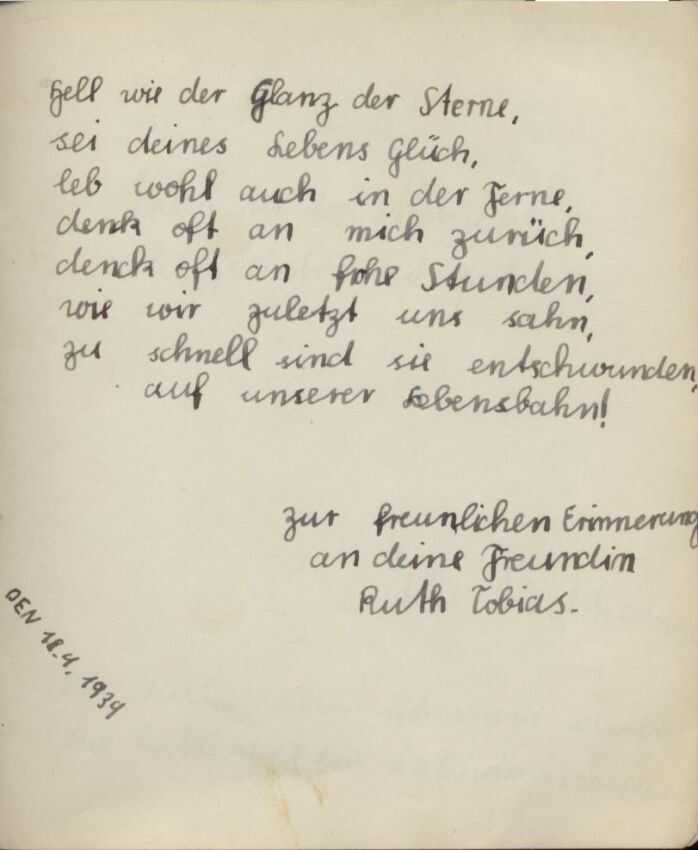 Hell wie der Glanz der Sterne,
sei deines Lebens Glüch,
leb wohl auch in der Ferne,
denk oft an mich zurüch,
denck oft an frohe Stunden,
wie wir zuletzt uns sahn,
zu schnell sind sie entschwunden,
auf unserer Lebensbahn!
zur freunlichen Erinnerung
an deine Freundin
Ruth Tobias.
DEN 18.4.1939